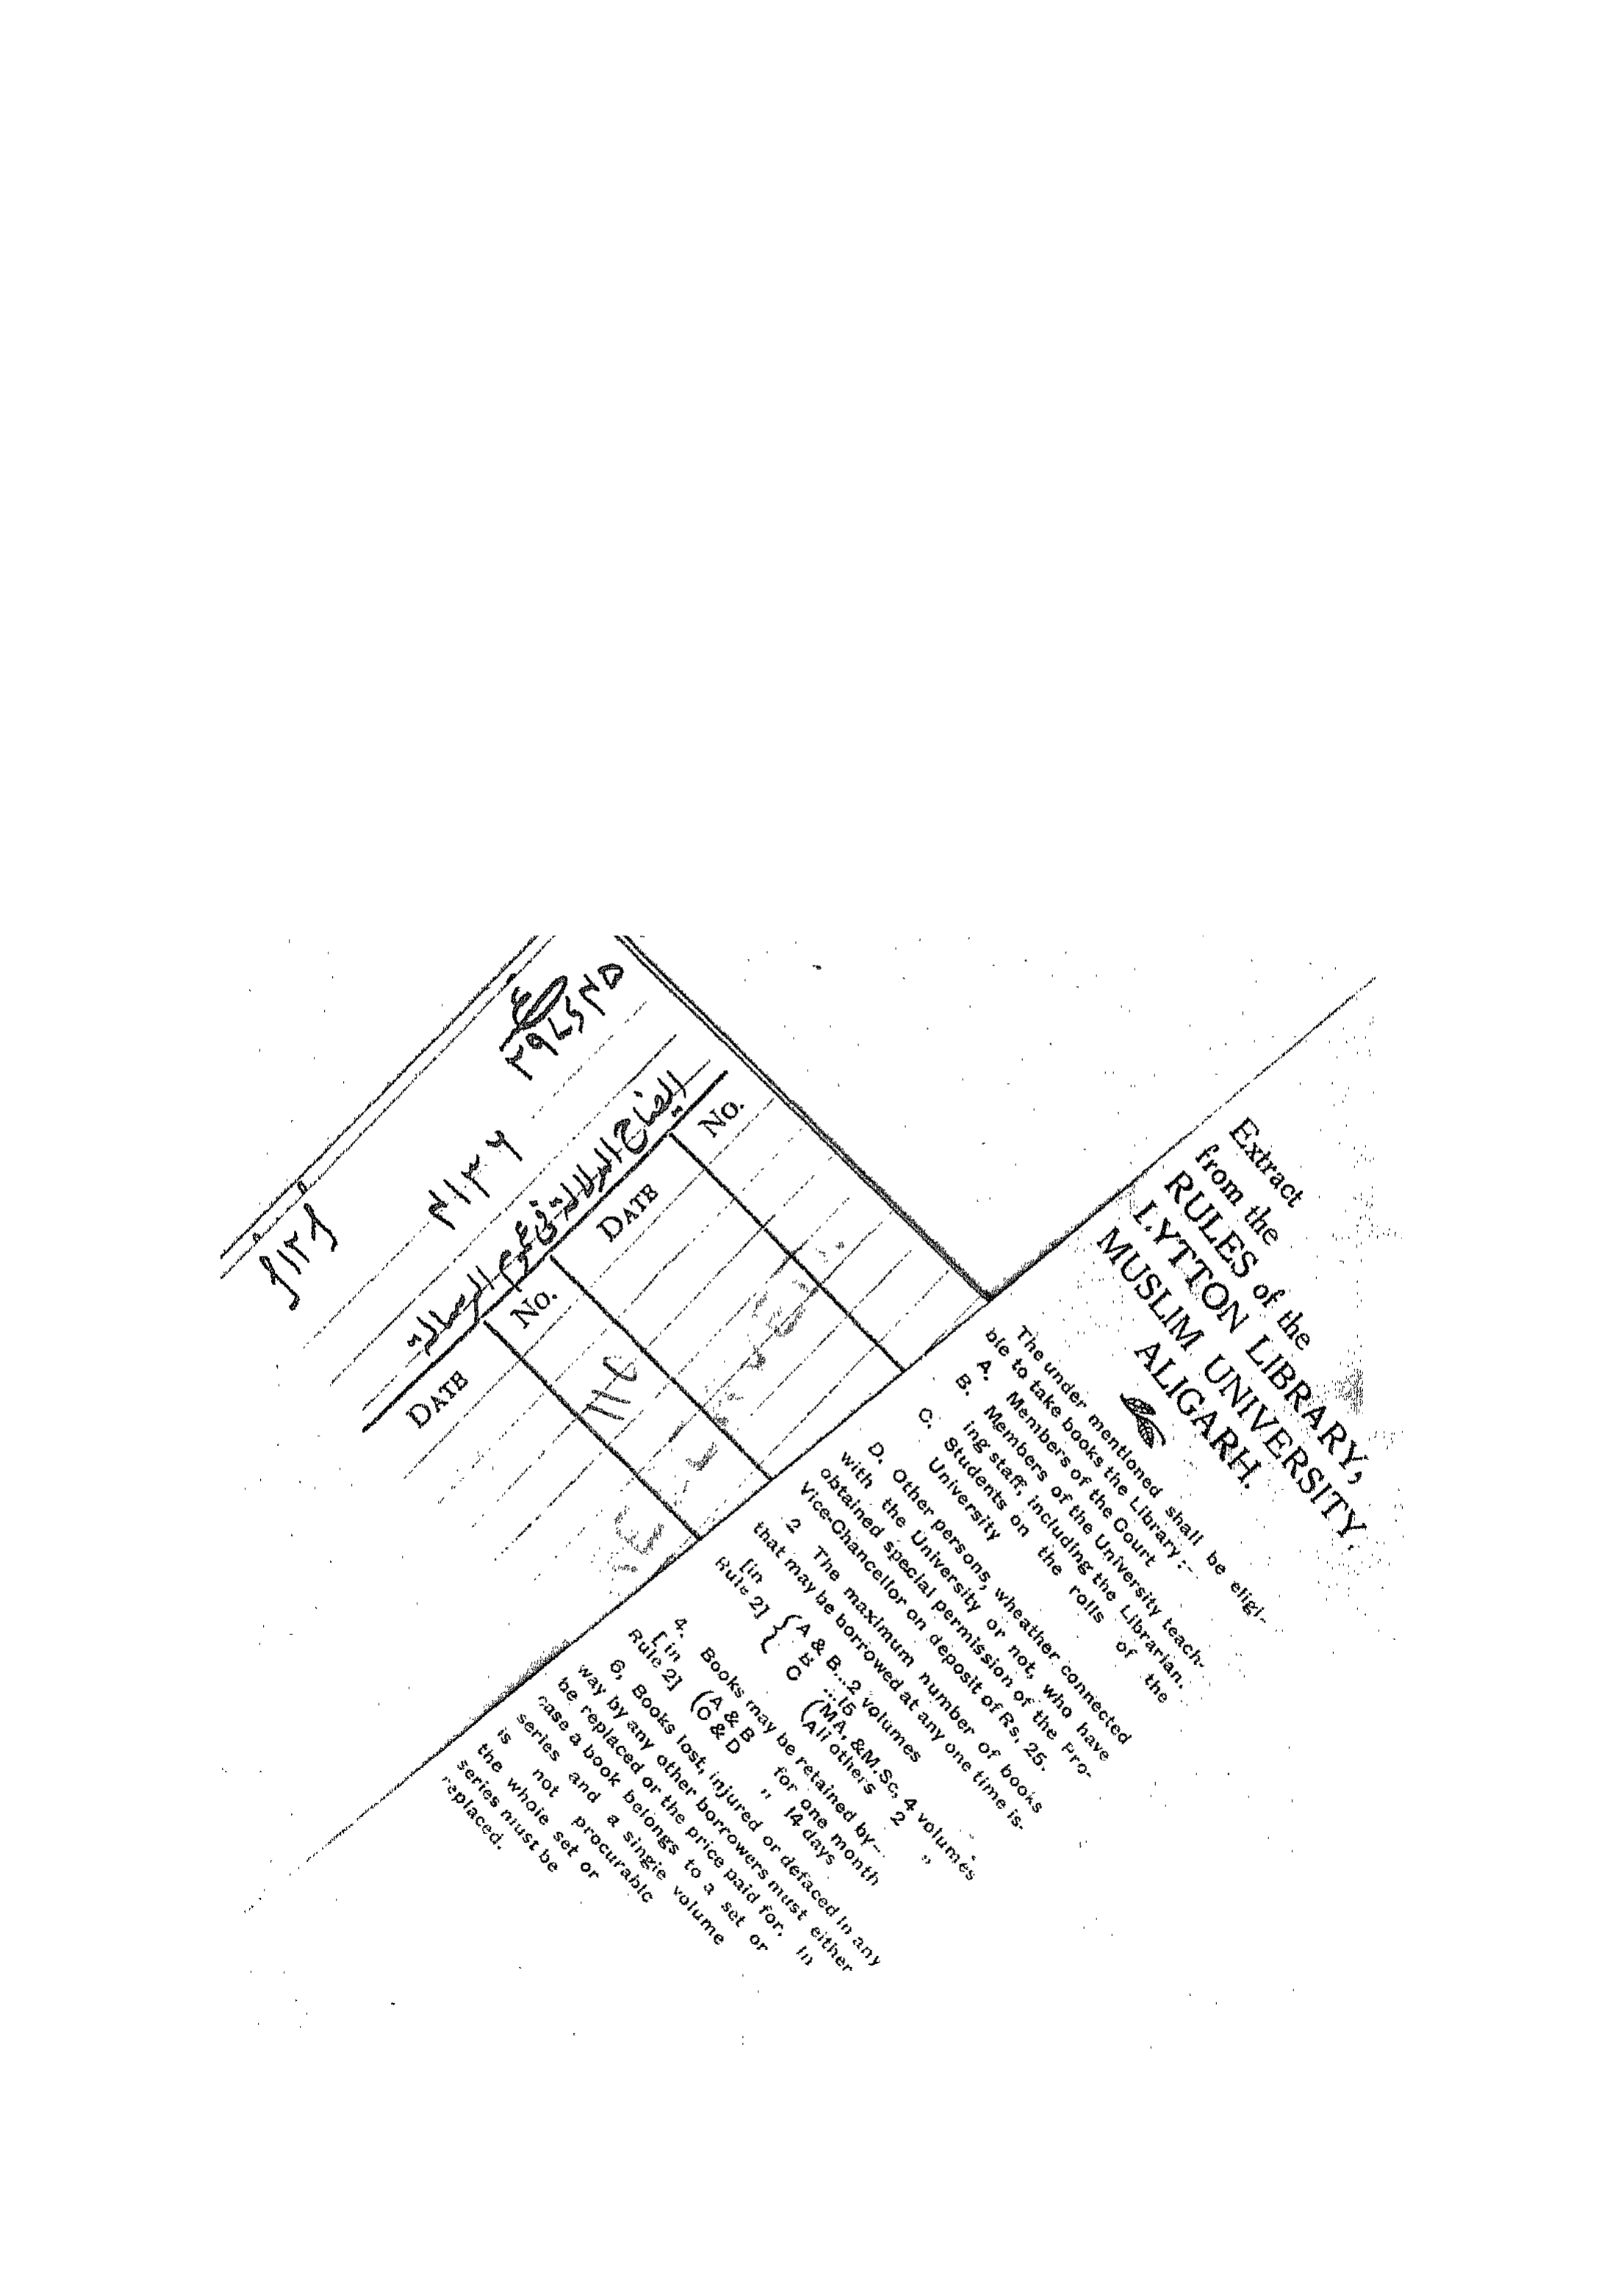 ع
۲۹۷۶۴۵
۴۱۳۶
ایضاح الدلالة فی عموم الرسالة
DATE No. DATE No.
Extract
from the
RULES of the
LYTTON LIBRARY,
MUSLIM UNIVERSITY.
ALIGARH.
The under mentioned shall be eligi-
ble to take books the Library:-
A. Members of the Court
B. Members of the University teach-
ing staff, including the Librarian.
C. Students on the rolls of the
University
D. Other persons, wheather connected
with the University or not, who have
obtained special permission of the Pro-
Vice-Chancellor on deposit of Rs, 25.
2 The maximum number of books
that may be borrowed at any one time is.
[in Rule 2] { A & B...2 volumes
" ...15
C (MA, &M.Sc, 4 volumes
(All others 2 "
4. Books may be retained by--
[in Rule 2] (A & B for one month
(C & D " 14 days
6, Books lost, injured or defaced in any
way by any other borrowers must either
be replaced or the price paid for. In
case a book belongs to a set or
series and a single volume
is not procurable
the whole set or
series must be
replaced.